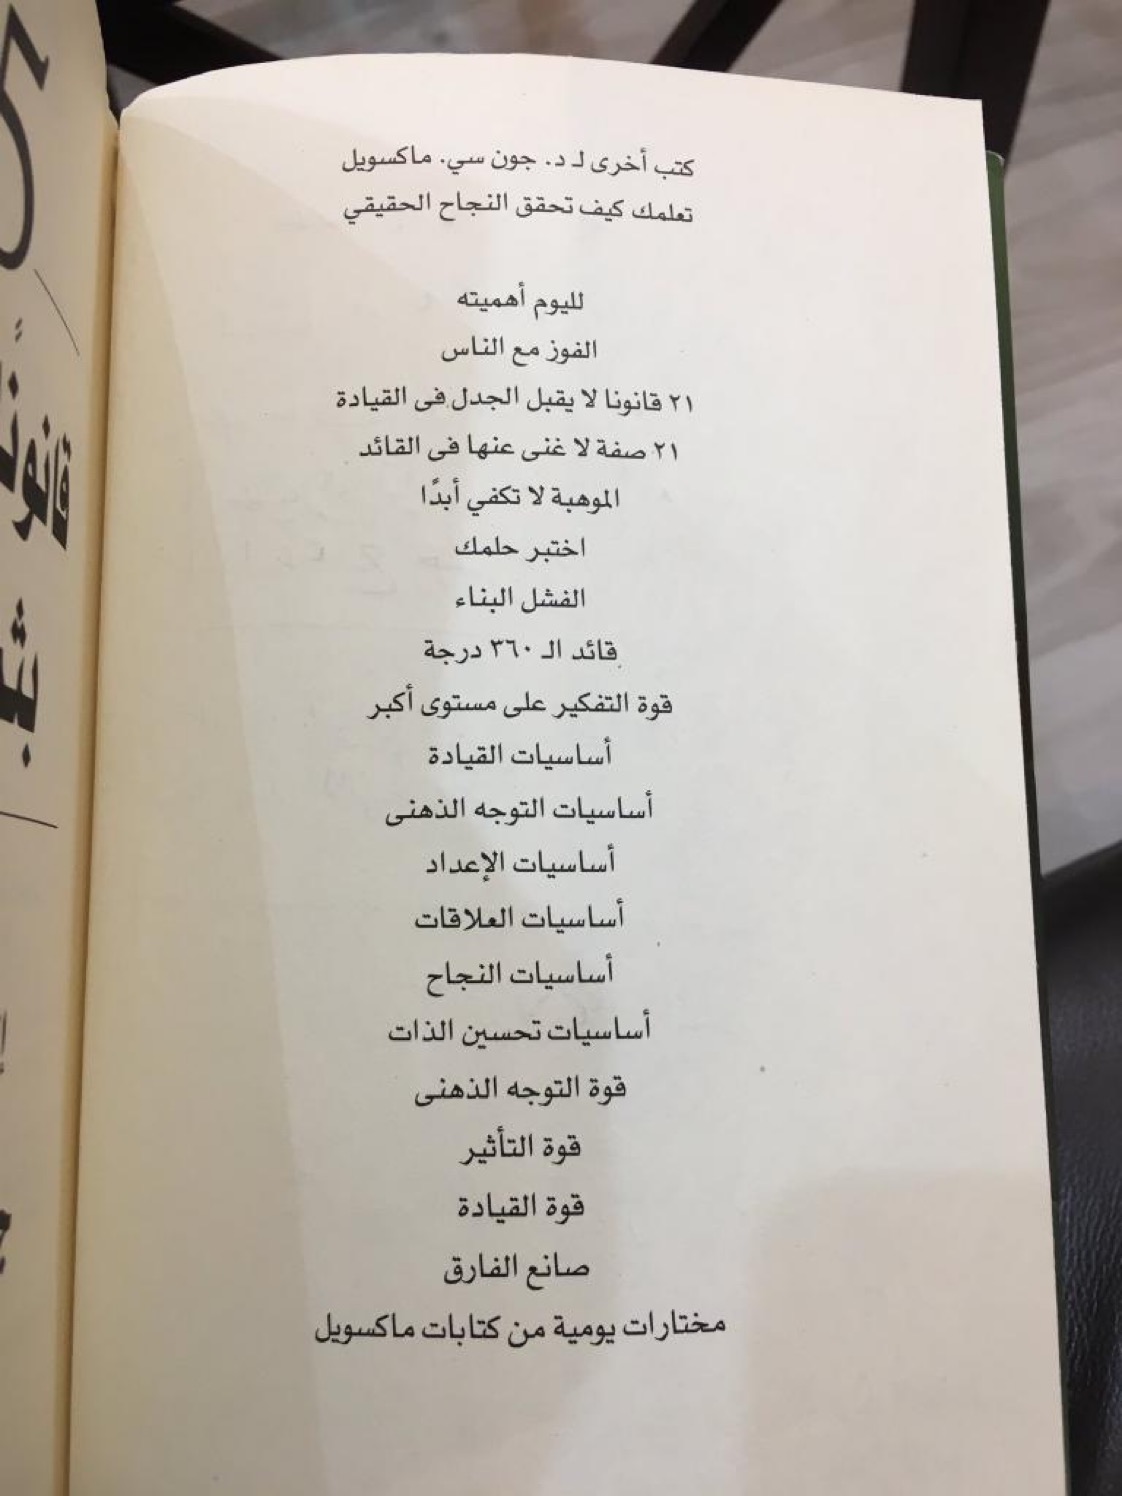 كتب أخرى لـ د. جون سي. ماكسويل
تعلمك كيف تحقق النجاح الحقيقي
لليوم أهميته
الفوز مع الناس
٢١ قانونا لا يقبل الجدل فى القيادة
٢١ صفة لا غنى عنها فى القائد
الموهبة لا تكفي أبدًا
اختبر حلمك
الفشل البناء
قائد الـ ٣٦٠ درجة
قوة التفكير على مستوى أكبر
أساسيات القيادة
أساسيات التوجه الذهنى
أساسيات الإعداد
أساسيات العلاقات
أساسيات النجاح
أساسيات تحسين الذات
قوة التوجه الذهنى
قوة التأثير
قوة القيادة
صانع الفارق
مختارات يومية من كتابات ماكسويل